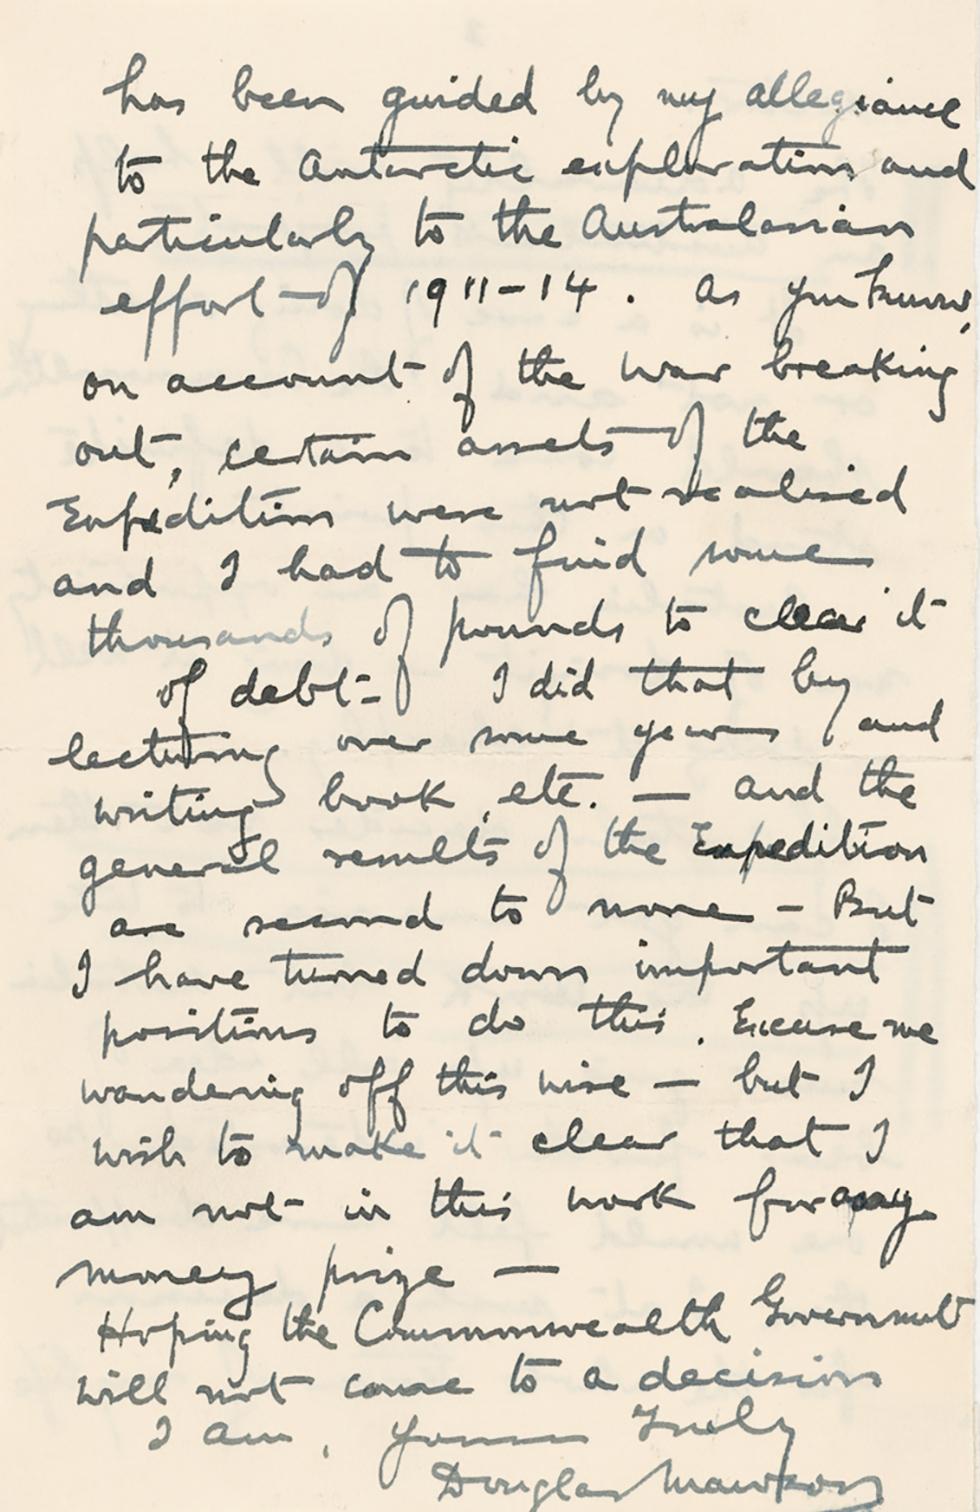 has been guided by my allegiance
to the Antarctic exploration and
particularly to the Australasian
effort of 1911-14. As you know,
on account of the war breaking
out, certain assets of the
Expedition were not realised
and I had to find some
thousands of pounds to clear it
of debt - I did that by
lecturing over some years, and
writing book, etc. — and the
general results of the Expedition
are second to none - But
I have turned down important
positions to do this. Excuse me
wandering off this wise — but I
wish to make it clear that I
am not in this work for
money prize —
Hoping the Commonwealth Government
will not come to a decision
I am, Yours Truly
Douglas Mawson